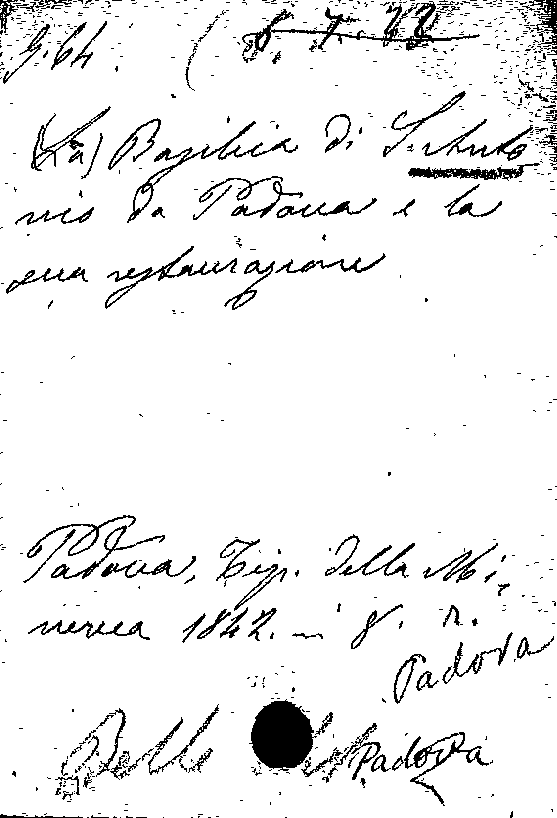 G.64.
(La) Basilica di S. Anto
nio da Padova e la
sua restaurazione
Padova, Tip. della Mi,
nerva 1842. in 8. r.
Padova
Belle Padova